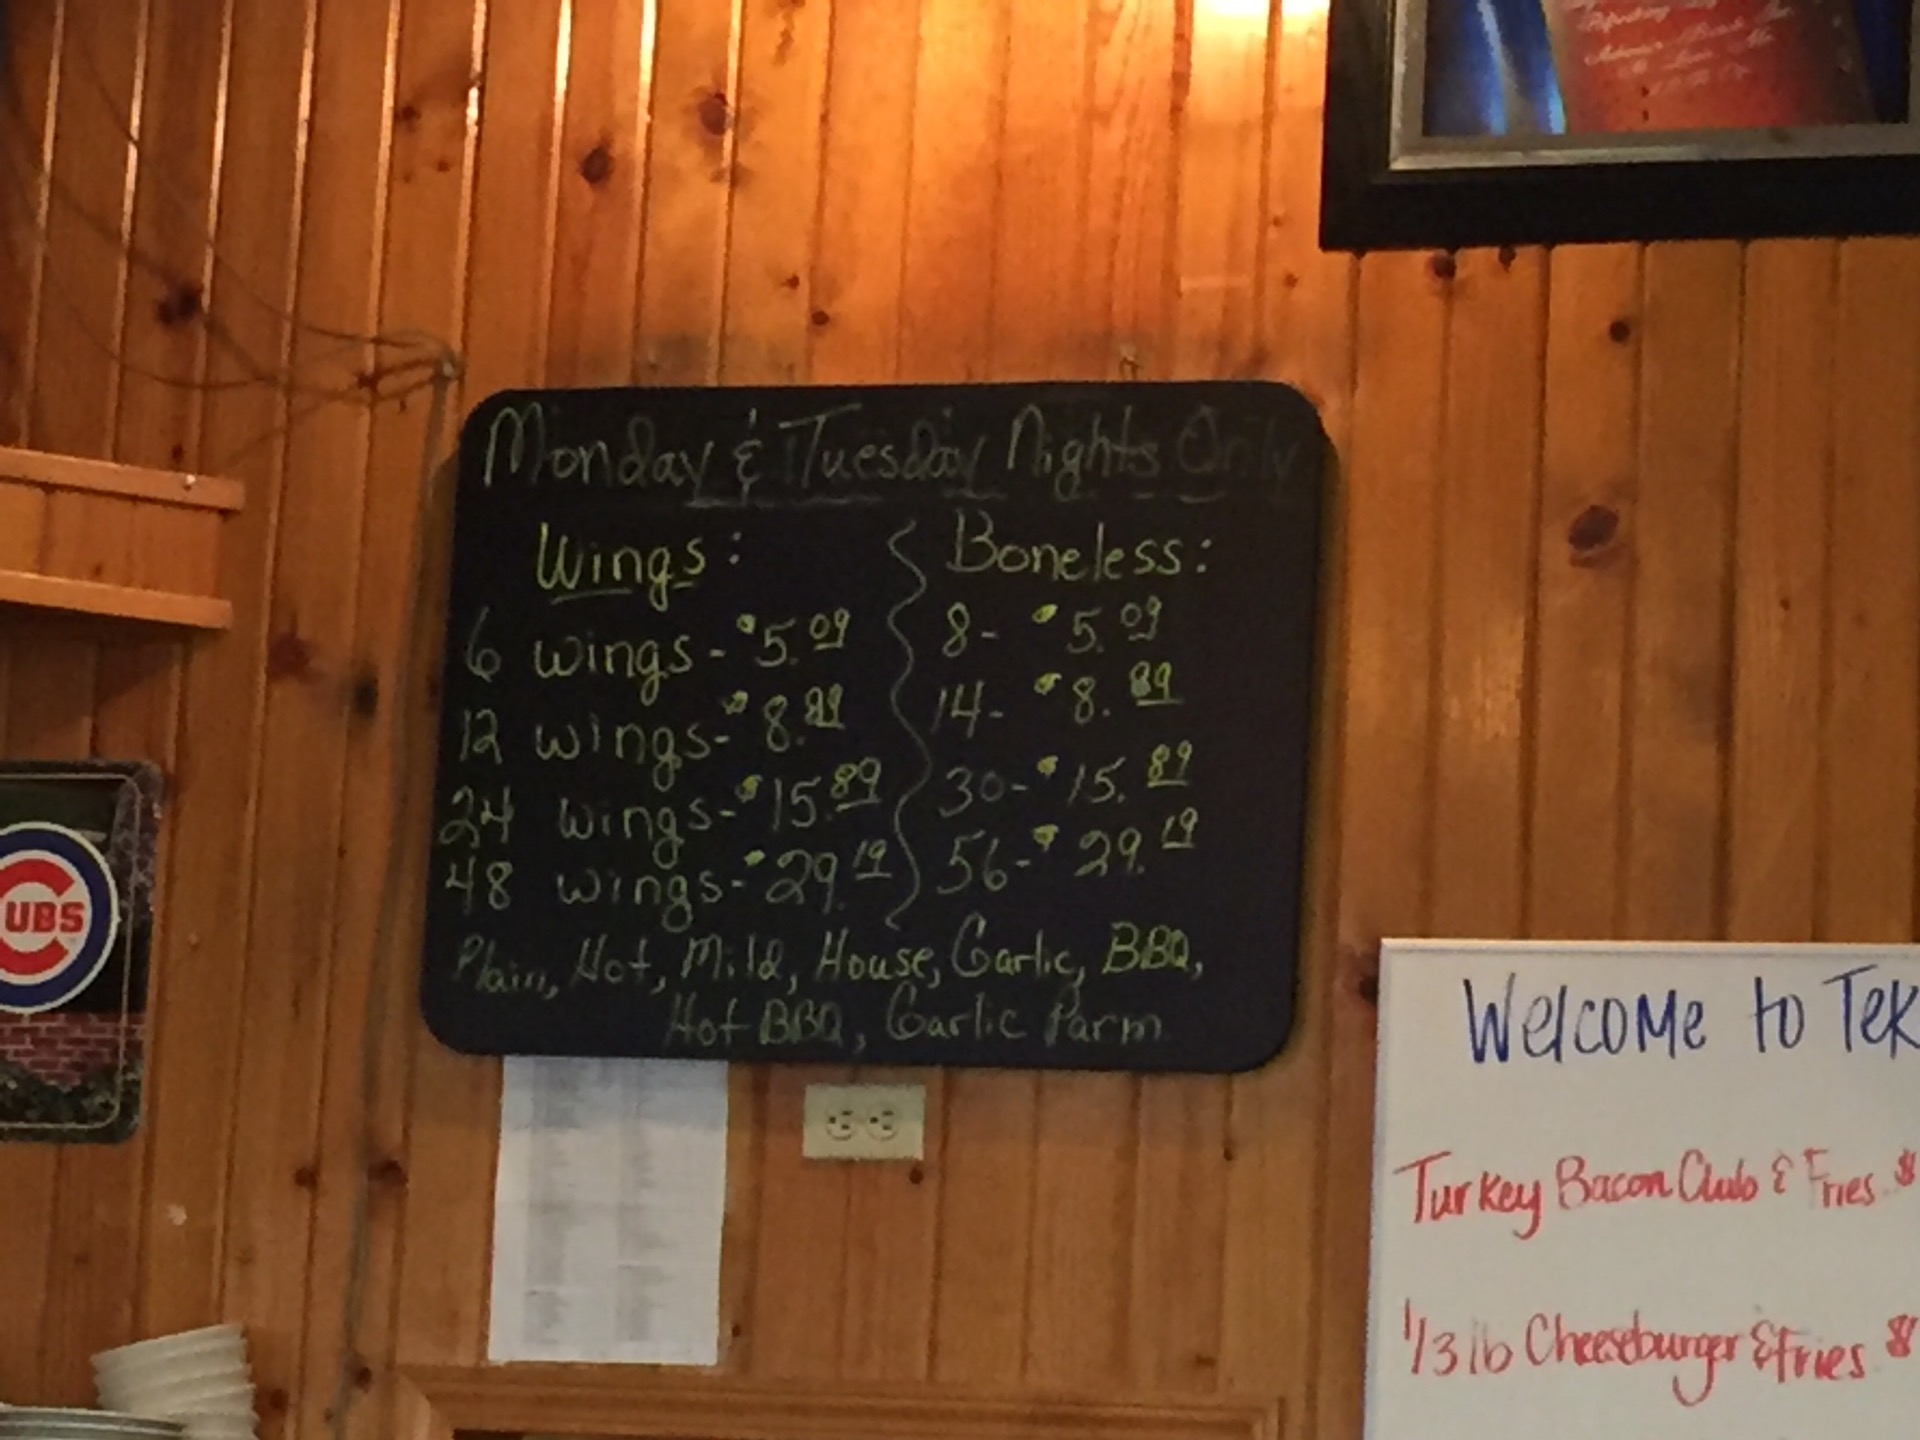 Monday & Tuesday Nights Only
Wings:
6 wings - $5.09
12 wings - $8.89
24 wings - $15.89
48 wings - $29.19
Boneless:
8 - $5.09
14 - $8.89
30 - $15.89
56 - $29.19
Plain, Hot, Mild, House, Garlic, BBQ,
Hot BBQ, Garlic Parm
UBS
Welcome to Tek
Turkey Bacon Club & Fries $
1/3 lb Cheeseburger & Fries $